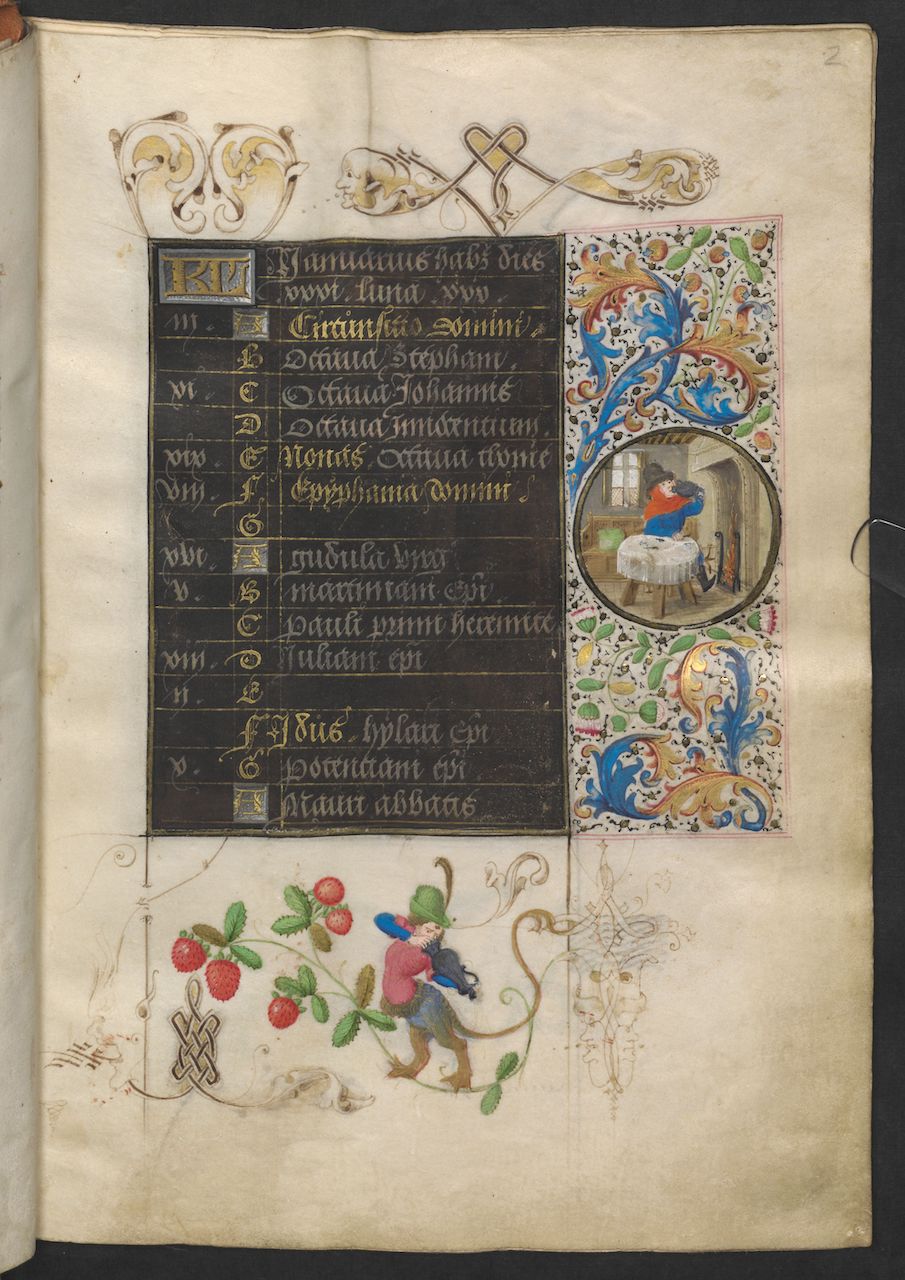 2
KL Januarius habꝫ dies
xxxi. luna. xxx.
iii. A Circūnsitio domini.
B Octaua Stephani.
xi. C Octaua Johannis
D Octaua Innocentium
xix E Nonas. Octaua thome
viii. F Epyphania domini
G
xvi A gudula virg
v. B martiniani ep̄i.
C pauli primi heremite
xiii D Juliani ep̄i
ii. E
F Idus. hylarii ep̄i
x. G potentiani ep̄i
A Mauri abbatis